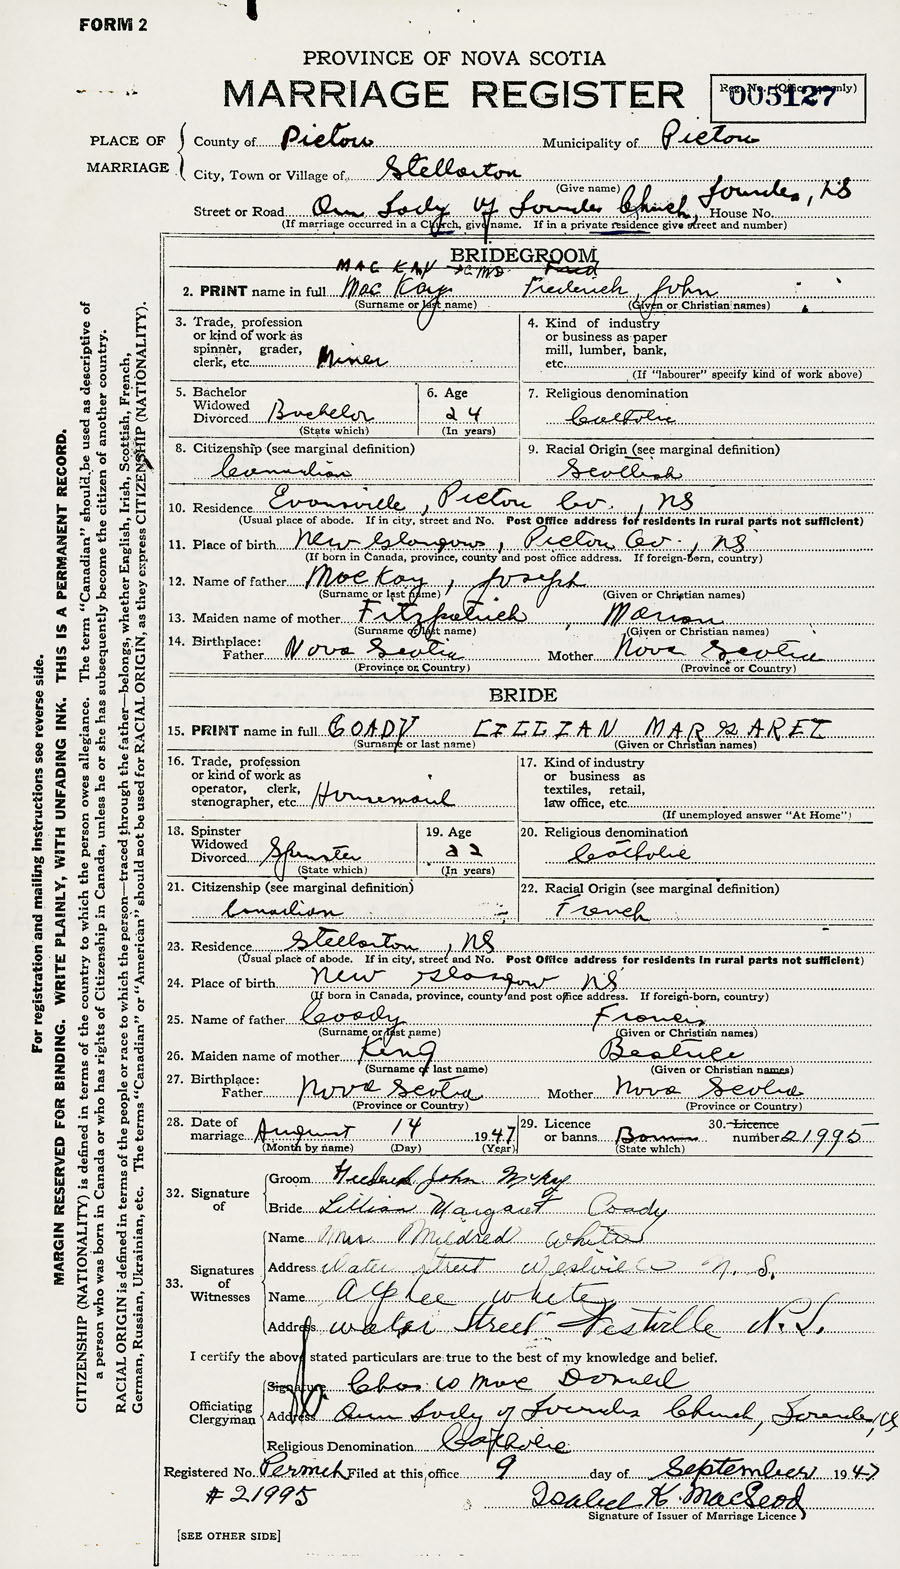 FORM 2
PROVINCE OF NOVA SCOTIA
MARRIAGE REGISTER
Reg. No. (Office use only)
005127
PLACE OF MARRIAGE
County of Pictou Municipality of Pictou
City, Town or Village of Stellarton
(Give name) Lourdes, NS
Street or Road Our Lady of Lourdes Church, House No.
(If marriage occurred in a Church, give name. If in a private residence give street and number)
BRIDEGROOM
MAC KAY
2. PRINT name in full MacKay Frederick John
(Surname or last name) (Given or Christian names)
3. Trade, profession or kind of work as spinner, grader, clerk, etc. Miner
4. Kind of industry or business as paper mill, lumber, bank, etc.
(If "labourer" specify kind of work above)
5. Bachelor Widowed Divorced Bachelor
(State which)
6. Age 24
(In years)
7. Religious denomination Catholic
8. Citizenship (see marginal definition) Canadian
9. Racial Origin (see marginal definition) Scottish
10. Residence Evansville, Pictou Co., NS
(Usual place of abode. If in city, street and No. Post Office address for residents in rural parts not sufficient)
11. Place of birth New Glasgow, Pictou Co., NS
(If born in Canada, province, county and post office address. If foreign-born, country)
12. Name of father MacKay, Joseph
(Surname or last name) (Given or Christian names)
13. Maiden name of mother Fitzpatrick, Marion
(Surname or last name) (Given or Christian names)
14. Birthplace: Father Nova Scotia Mother Nova Scotia
(Province or Country) (Province or Country)
BRIDE
15. PRINT name in full COADY LILLIAN MARGARET
(Surname or last name) (Given or Christian names)
16. Trade, profession or kind of work as operator, clerk, stenographer, etc. Housemaid
17. Kind of industry or business as textiles, retail, law office, etc.
(If unemployed answer "At Home")
18. Spinster Widowed Divorced Spinster
(State which)
19. Age 22
(In years)
20. Religious denomination Catholic
21. Citizenship (see marginal definition) Canadian
22. Racial Origin (see marginal definition) French
23. Residence Stellarton, NS
(Usual place of abode. If in city, street and No. Post Office address for residents in rural parts not sufficient)
24. Place of birth New Glasgow NS
(If born in Canada, province, county and post office address. If foreign-born, country)
25. Name of father Coady Francis
(Surname or last name) (Given or Christian names)
26. Maiden name of mother King Beatrice
(Surname or last name) (Given or Christian names)
27. Birthplace: Father Nova Scotia Mother Nova Scotia
(Province or Country) (Province or Country)
28. Date of marriage August 14 1947
(Month by name) (Day) (Year)
29. Licence or banns Banns
(State which)
30. Licence number 21995
32. Signature of
Groom Frederick John McKay
Bride Lillian Margaret Coady
33. Signatures of Witnesses
Name Mrs Mildred White
Address Water Street Westville N.S.
Name Alphee White
Address Water Street Westville N.S.
I certify the above stated particulars are true to the best of my knowledge and belief.
Officiating Clergyman
Signature Chas W MacDonald
Address Our Lady of Lourdes Church, Lourdes, NS
Religious Denomination Catholic
Registered No. Permit Filed at this office 9 day of September 1947
# 21995 Isabel K. MacLeod
Signature of Issuer of Marriage Licence
[SEE OTHER SIDE]
For registration and mailing instructions see reverse side.
MARGIN RESERVED FOR BINDING. WRITE PLAINLY, WITH UNFADING INK. THIS IS A PERMANENT RECORD.
CITIZENSHIP (NATIONALITY) is defined in terms of the country to which the person owes allegiance. The term "Canadian" should be used as descriptive of
a person who was born in Canada or who has rights of Citizenship in Canada, unless he or she has subsequently become the citizen of another country.
RACIAL ORIGIN is defined in terms of the people or race to which the person—traced through the father—belongs, whether English, Irish, Scottish, French,
German, Russian, Ukrainian, etc. The terms "Canadian" or "American" should not be used for RACIAL ORIGIN, as they express CITIZENSHIP (NATIONALITY).